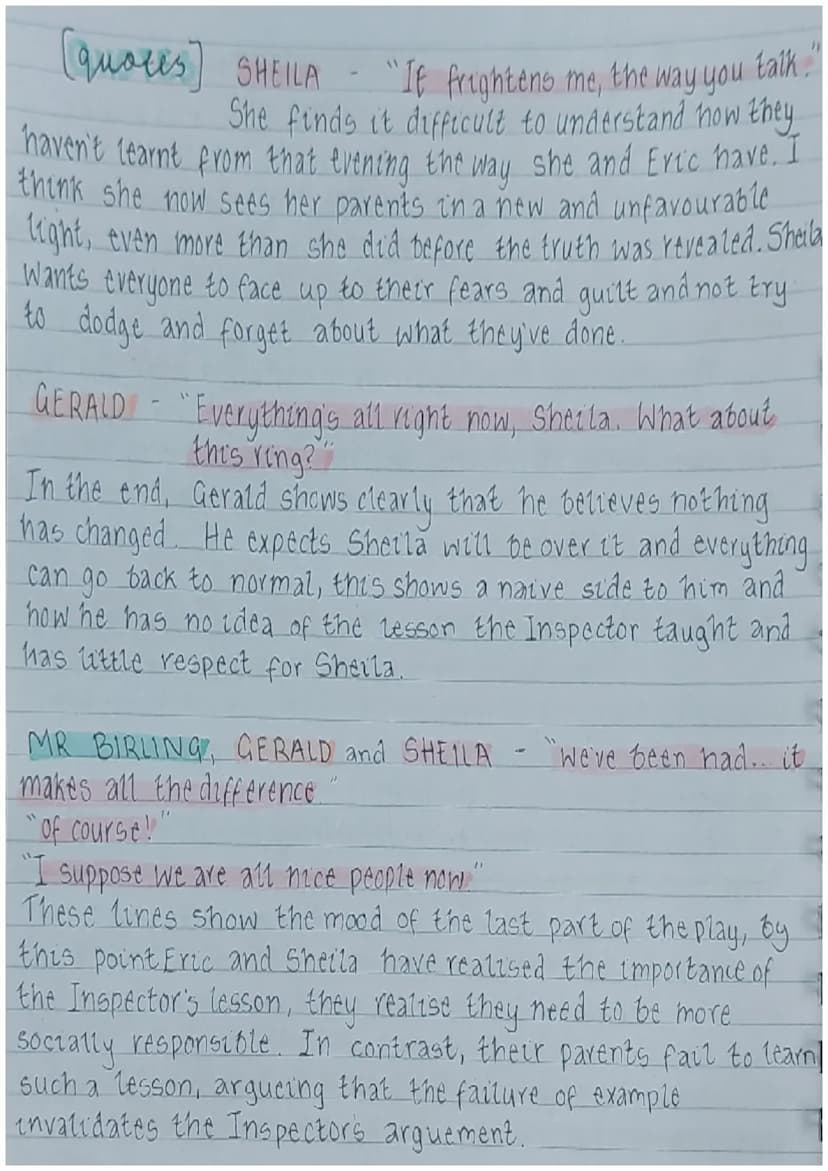 [quotes] SHEILA - "It frightens me, the way you talk."
She finds it difficult to understand how they
haven't learnt from that evening the way she and Eric have. I
think she now sees her parents in a new and unfavourable
light, even more than she did before the truth was revealed. Sheila
wants everyone to face up to their fears and guilt and not try
to dodge and forget about what they've done.
GERALD - "Everything's all right now, Sheila. What about
this ring?"
In the end, Gerald shows clearly that he believes nothing
has changed. He expects Sheila will be over it and everything
can go back to normal, this shows a naive side to him and
how he has no idea of the lesson the Inspector taught and
has little respect for Sheila.
MR BIRLING, GERALD and SHEILA - "We've been had... it
makes all the difference"
"Of course!"
"I suppose we are all nice people now"
These lines show the mood of the last part of the play, by
this point Eric and Sheila have realised the importance of
the Inspector's lesson, they realise they need to be more
socially responsible. In contrast, their parents fail to learn
such a lesson, argueing that the failure of example
invalidates the Inspector's arguement.